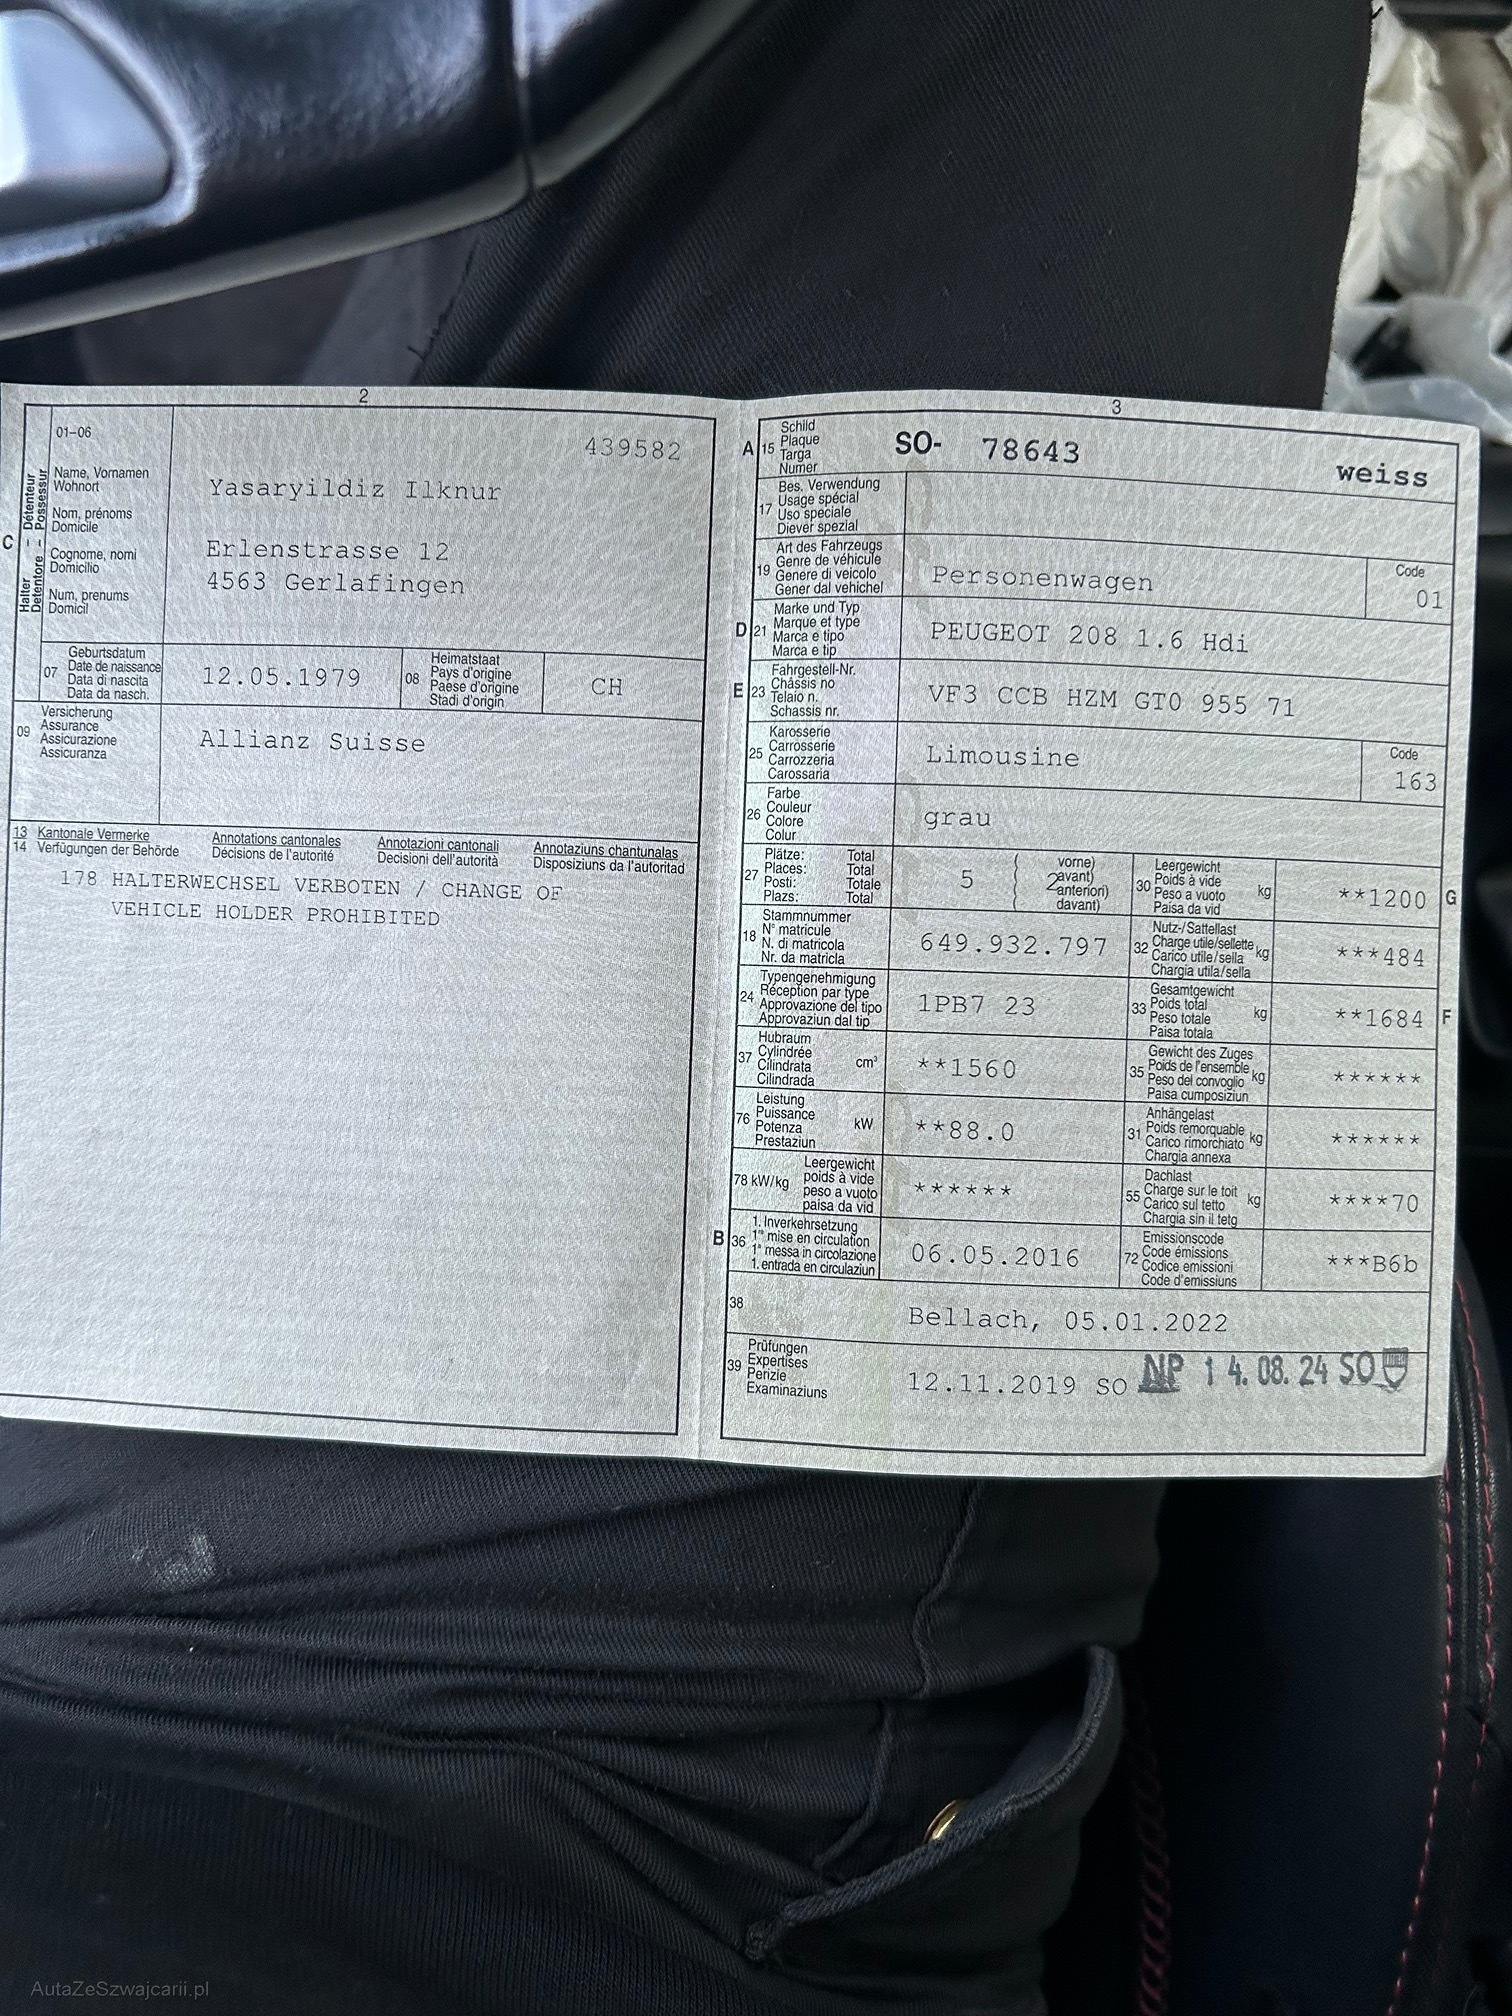 2
01-06
439582
C
Halter - Détenteur
Detentore - Possessur
Name, Vornamen
Wohnort
Nom, prénoms
Domicile
Cognome, nomi
Domicilio
Num, prenums
Domicil
Yasaryildiz Ilknur
Erlenstrasse 12
4563 Gerlafingen
07
Geburtsdatum
Date de naissance
Data di nascita
Data da nasch.
12.05.1979
08
Heimatstaat
Pays d'origine
Paese d'origine
Stadi d'origin
CH
09
Versicherung
Assurance
Assicurazione
Assicuranza
Allianz Suisse
13 Kantonale Vermerke Annotations cantonales Annotazioni cantonali Annotaziuns chantunalas
14 Verfügungen der Behörde Décisions de l'autorité Decisioni dell'autorità Disposiziuns da l'autoritad
178 HALTERWECHSEL VERBOTEN / CHANGE OF
VEHICLE HOLDER PROHIBITED
3
A 15
Schild
Plaque
Targa
Numer
SO- 78643
weiss
17
Bes. Verwendung
Usage spécial
Uso speciale
Diever spezial
19
Art des Fahrzeugs
Genre de véhicule
Genere di veicolo
Gener dal vehichel
Personenwagen
Code
01
D 21
Marke und Typ
Marque et type
Marca e tipo
Marca e tip
PEUGEOT 208 1.6 Hdi
E 23
Fahrgestell-Nr.
Châssis no
Telaio n.
Schassis nr.
VF3 CCB HZM GT0 955 71
25
Karosserie
Carrosserie
Carrozzeria
Carossaria
Limousine
Code
163
26
Farbe
Couleur
Colore
Colur
grau
27
Plätze: Total
Places: Total
Posti: Totale
Plazs: Total
5
2
vorne)
avant)
anteriori)
davant)
30
Leergewicht
Poids à vide
Peso a vuoto
Paisa da vid
kg
**1200
G
18
Stammnummer
N° matricule
N. di matricola
Nr. da matricla
649.932.797
32
Nutz-/Sattellast
Charge utile/sellette
Carico utile/sella
Chargia utila/sella
kg
***484
24
Typengenehmigung
Réception par type
Approvazione del tipo
Approvaziun dal tip
1PB7 23
33
Gesamtgewicht
Poids total
Peso totale
Paisa totala
kg
**1684
F
37
Hubraum
Cylindrée
Cilindrata
Cilindrada
cm³
**1560
35
Gewicht des Zuges
Poids de l'ensemble
Peso del convoglio
Paisa cumposiziun
kg
******
76
Leistung
Puissance
Potenza
Prestaziun
kW
**88.0
31
Anhängelast
Poids remorquable
Carico rimorchiato
Chargia annexa
kg
******
78 kW/kg
Leergewicht
poids à vide
peso a vuoto
paisa da vid
******
55
Dachlast
Charge sur le toit
Carico sul tetto
Chargia sin il tetg
kg
****70
B 36
1. Inverkehrsetzung
1re mise en circulation
1a messa in circolazione
1. entrada en circulaziun
06.05.2016
72
Emissionscode
Code émissions
Codice emissioni
Code d'emissiuns
***B6b
38
Bellach, 05.01.2022
39
Prüfungen
Expertises
Perizie
Examinaziuns
12.11.2019 SO
NP 14.08.24 SO
AutaZeSzwajcarii.pl